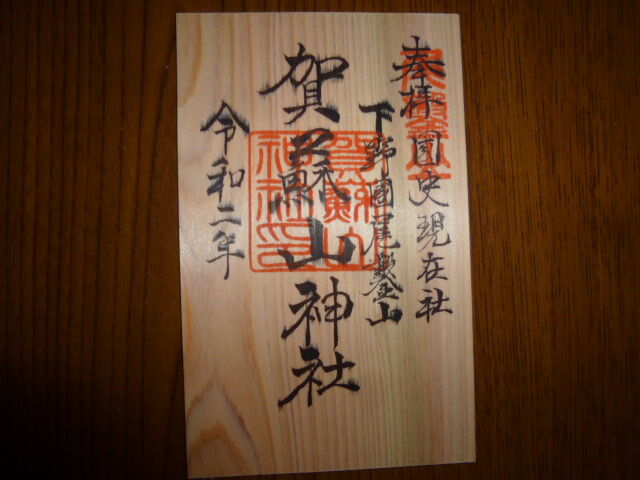 奉拝 国史現在社
下野国尾鑿山
賀蘇山神社
令和二年